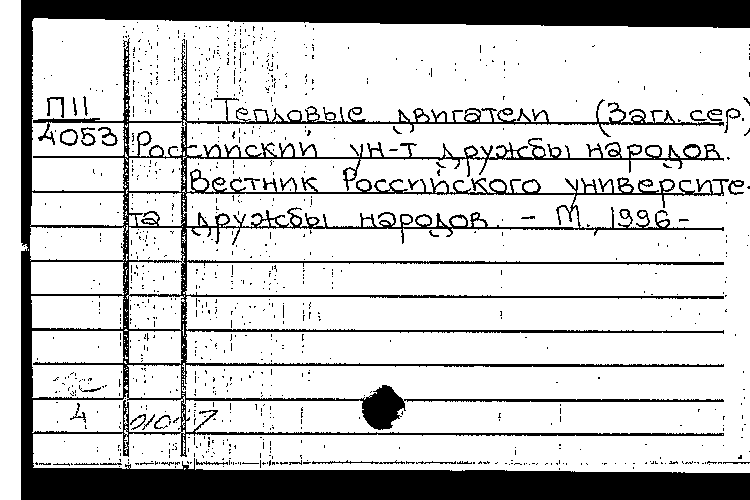 П11
4053
Тепловые двигатели (Загл. сер.)
Российский ун-т дружбы народов.
Вестник Российского университе-
та дружбы народов. - М., 1996 -
4